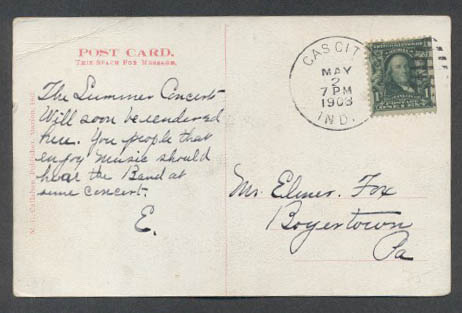 POST CARD.
THIS SPACE FOR MESSAGE.
The Summer Concert
Will soon be rendered
here. You people that
enjoy music should
hear the Band at
some concert.
E.
GAS CITY
MAY
2
7 PM
1908
IND.
1
Mr. Elmer Fox
Boyertown
Pa